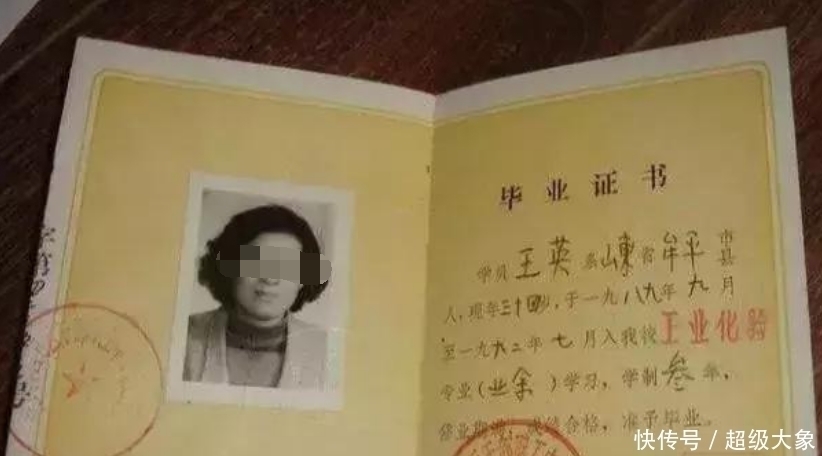 毕业证书
学员王英系山东省牟平市县
人，现年三十四岁，于一九八九年九月
至一九九二年七月入我校工业化验
专业（业余）学习，学制叁年，
修业期满，成绩合格，准予毕业。
快传号/超级大象